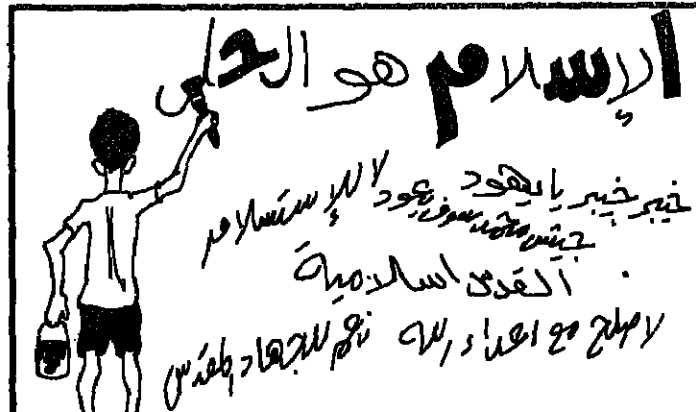 الإسلام هو الحل
خيبر خيبر يا يهود
جيش محمد سوف يعود
لا للإستسلام
القدس اسلامية
لا صلح مع اعداء الله
نعم للجهاد المقدس